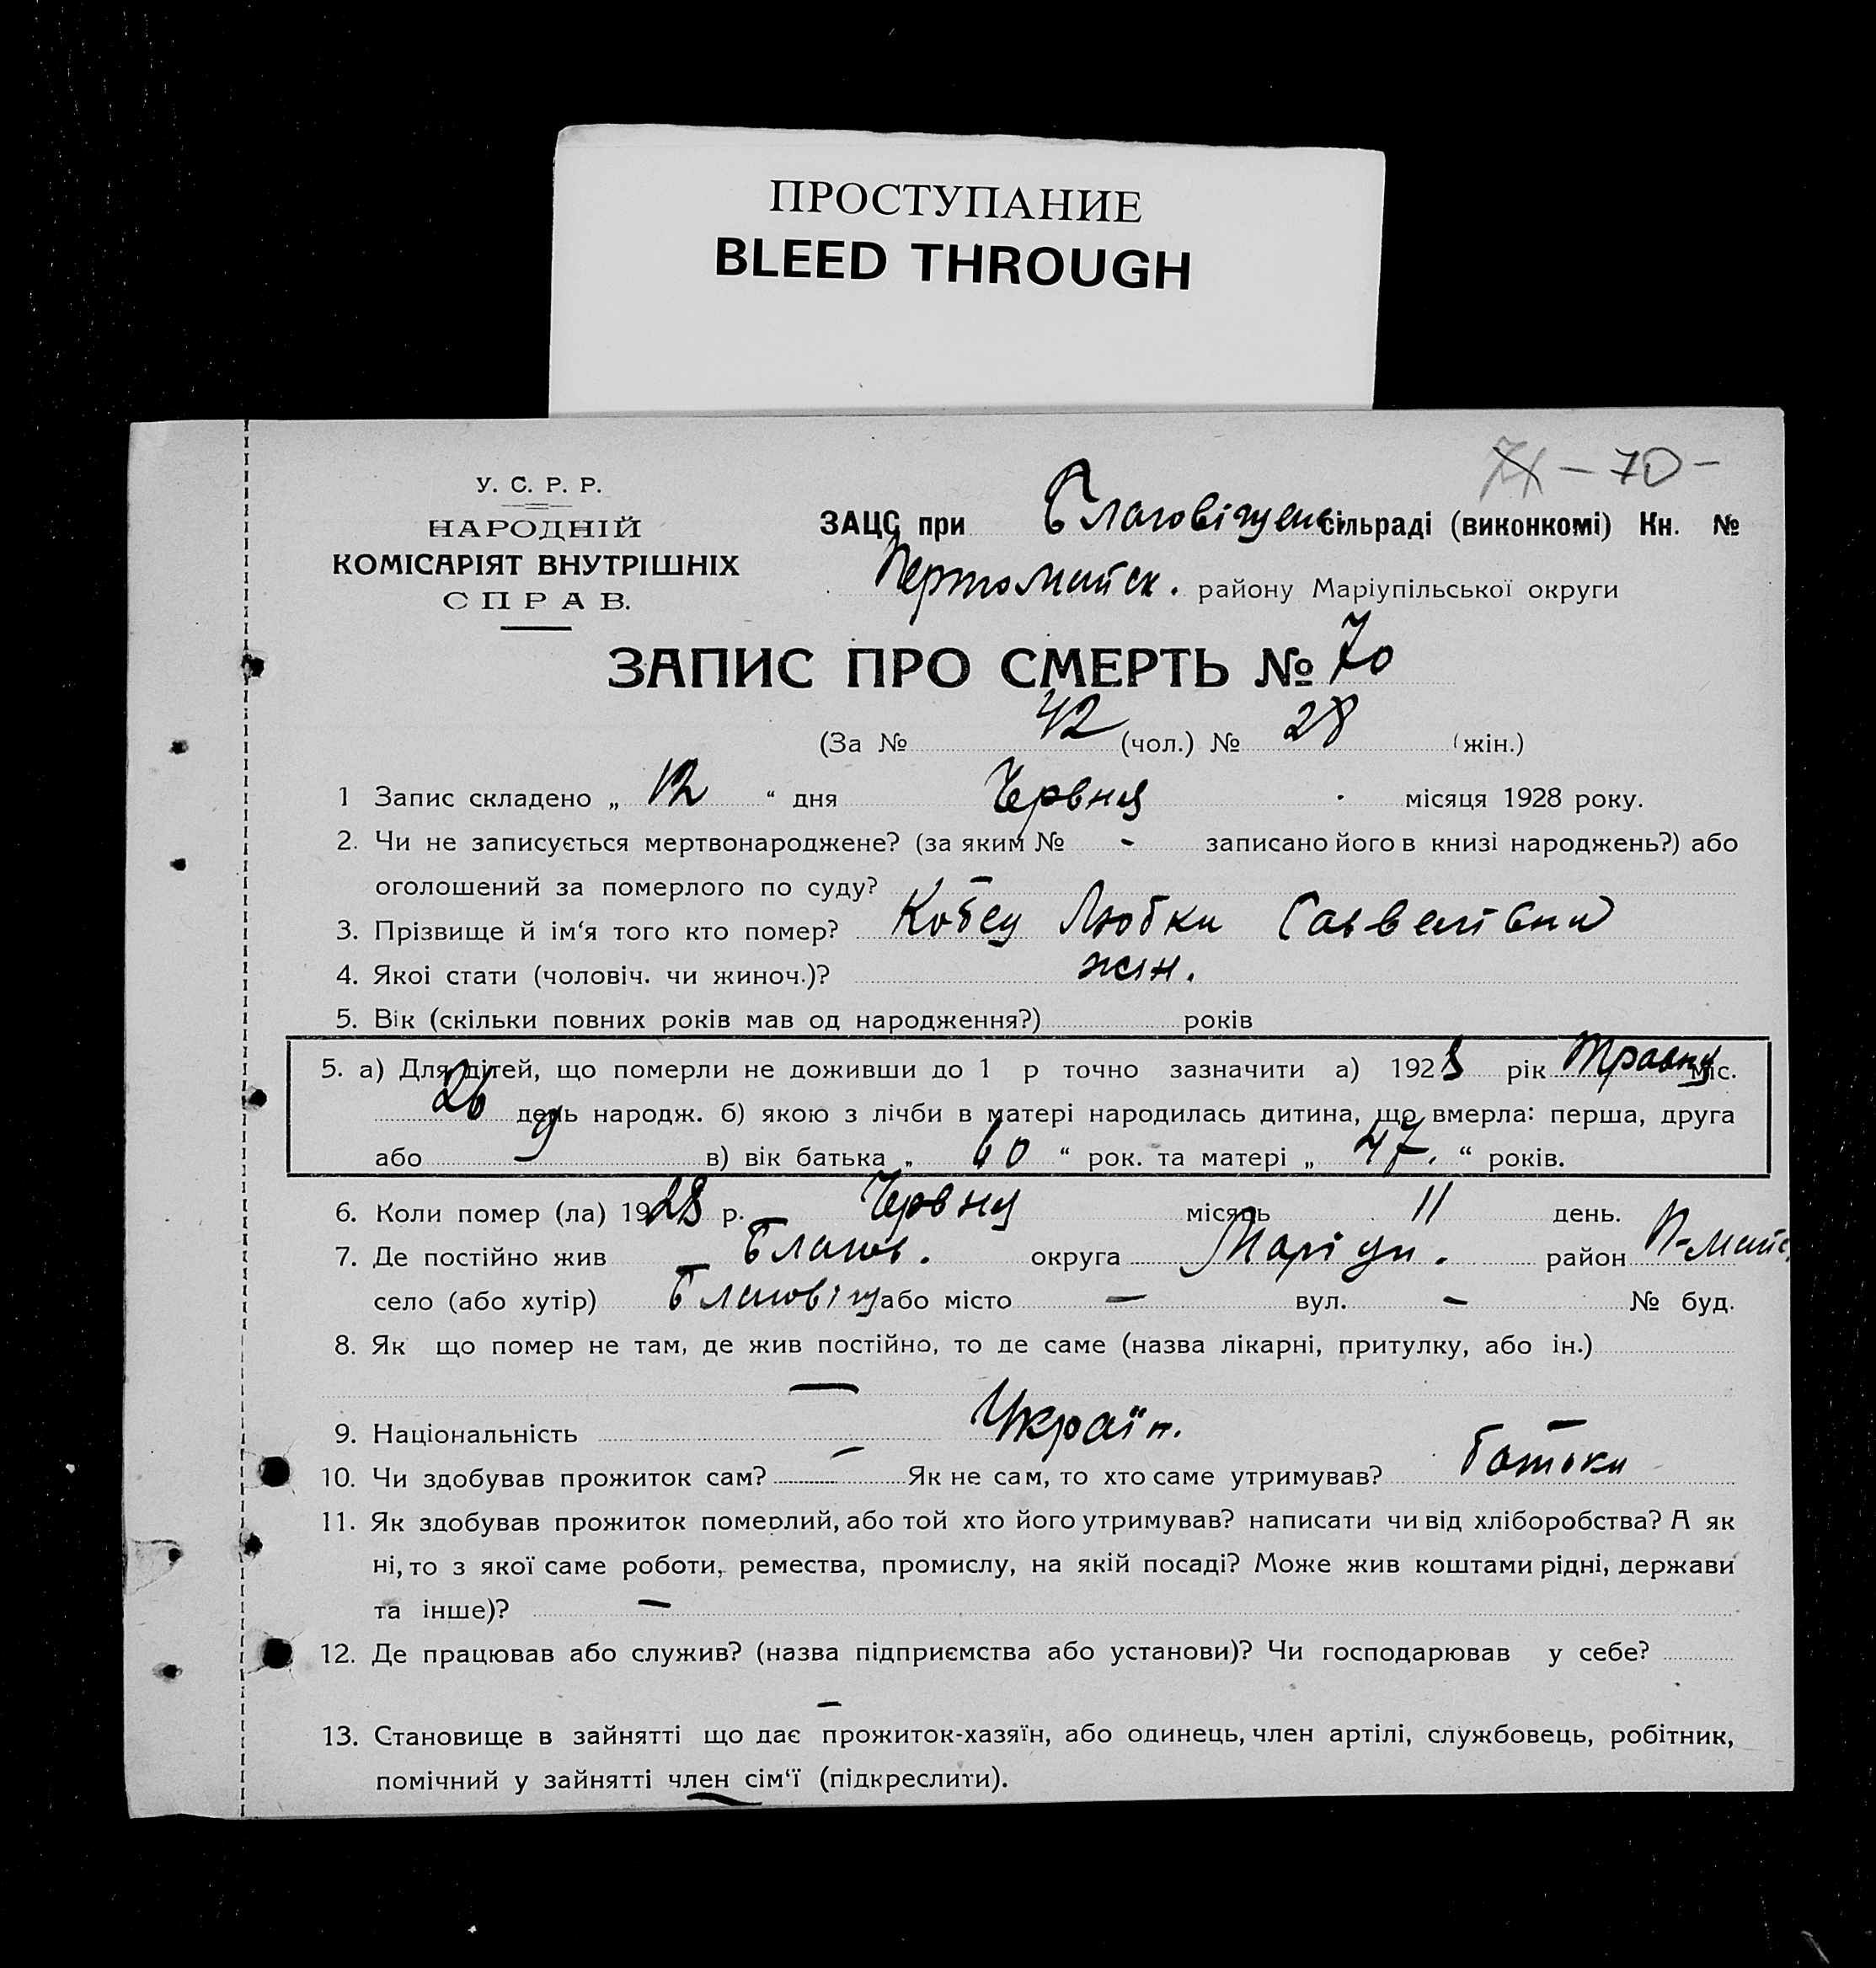 ПРОСТУПАНИЕ
BLEED THROUGH
71 – 70 –
У. С. Р. Р.
НАРОДНІЙ
КОМІСАРІЯТ ВНУТРІШНІХ
СПРАВ.
ЗАЦС при Благовіщенс. сільраді (виконкомі) Кн. №
Первомайск. району Маріупільської округи
ЗАПИС ПРО СМЕРТЬ № 70
(За № 42 (чол.) № 28 (жін.)
1 Запис складено „ 12 “ дня Червня місяця 1928 року.
2. Чи не записується мертвонароджене? (за яким № - записано його в книзі народжень?) або
оголошений за померлого по суду? –
3. Прізвище й ім‘я того кто помер? Кобец Любки
4. Якоі стати (чоловіч. чи жиноч.)? жін.
5. Вік (скільки повних років мав од народження?) років
5. а) Для дітей, що померли не доживши до 1 р точно зазначити а) 1928 рік Травня міс.
26 день народж. б) якою з лічби в матері народилась дитина, що вмерла: перша, друга
або 9 в) вік батька „ 60 “ рок. та матері „ 47. “ років.
6. Коли помер (ла) 1928 р. Червня місяць 11 день.
7. Де постійно жив Благов. округа Маріуп. район П-майс.
село (або хутір) Благовіщ або місто — вул. – № буд.
8. Як що помер не там, де жив постійно, то де саме (назва лікарні, притулку, або ін.)
—
9. Національність Україн.
10. Чи здобував прожиток сам? – Як не сам, то хто саме утримував? батьки
11. Як здобував прожиток померлий, або той хто його утримував? написати чи від хліборобства? А як
ні, то з якої саме роботи, ремества, промислу, на якій посаді? Може жив коштами рідні, держави
та інше)? –
12. Де працював або служив? (назва підприємства або установи)? Чи господарював у себе?
–
13. Становище в зайнятті що дає прожиток-хазяїн, або одинець, член артілі, службовець, робітник,
помічний у зайнятті член сім‘ї (підкреслити).